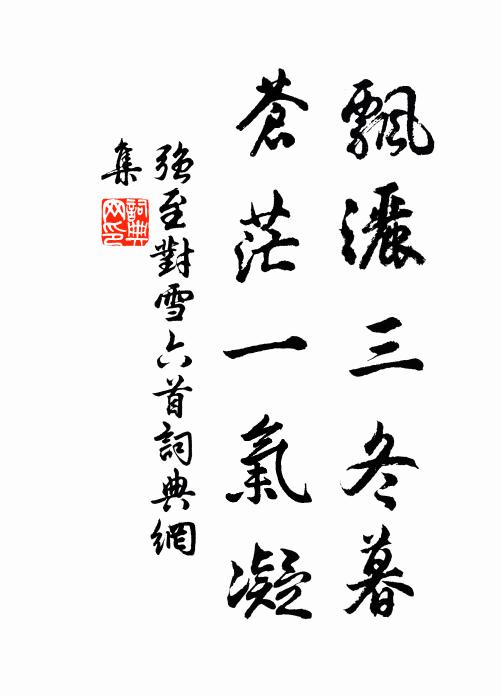 飄灑三冬暮
蒼茫一氣凝
強至對雪六首詞典網
集
詞典
网印